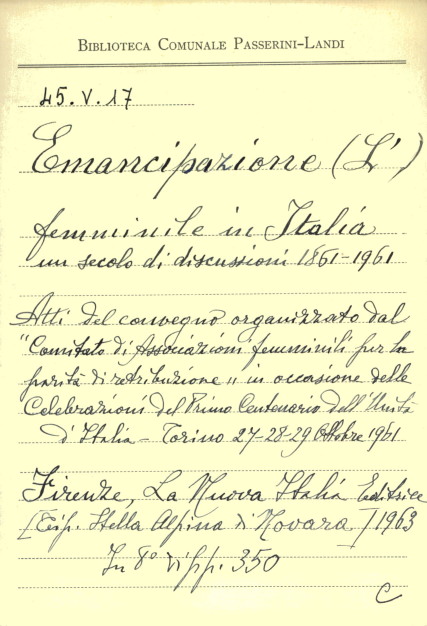 BIBLIOTECA COMUNALE PASSERINI-LANDI
45.V.17
Emancipazione (L')
femminile in Italia
un secolo di discussioni 1861-1961
Atti del convegno organizzato dal
"Comitato di Associazioni femminili per la
parità di retribuzione" in occasione delle
Celebrazioni del Primo Centenario dell'Unità
d'Italia - Torino 27-28-29 Ottobre 1961
Firenze, La Nuova Italia Editrice
[Tip. Stella Alpina di Novara] 1963
In 8° di pp. 350
C